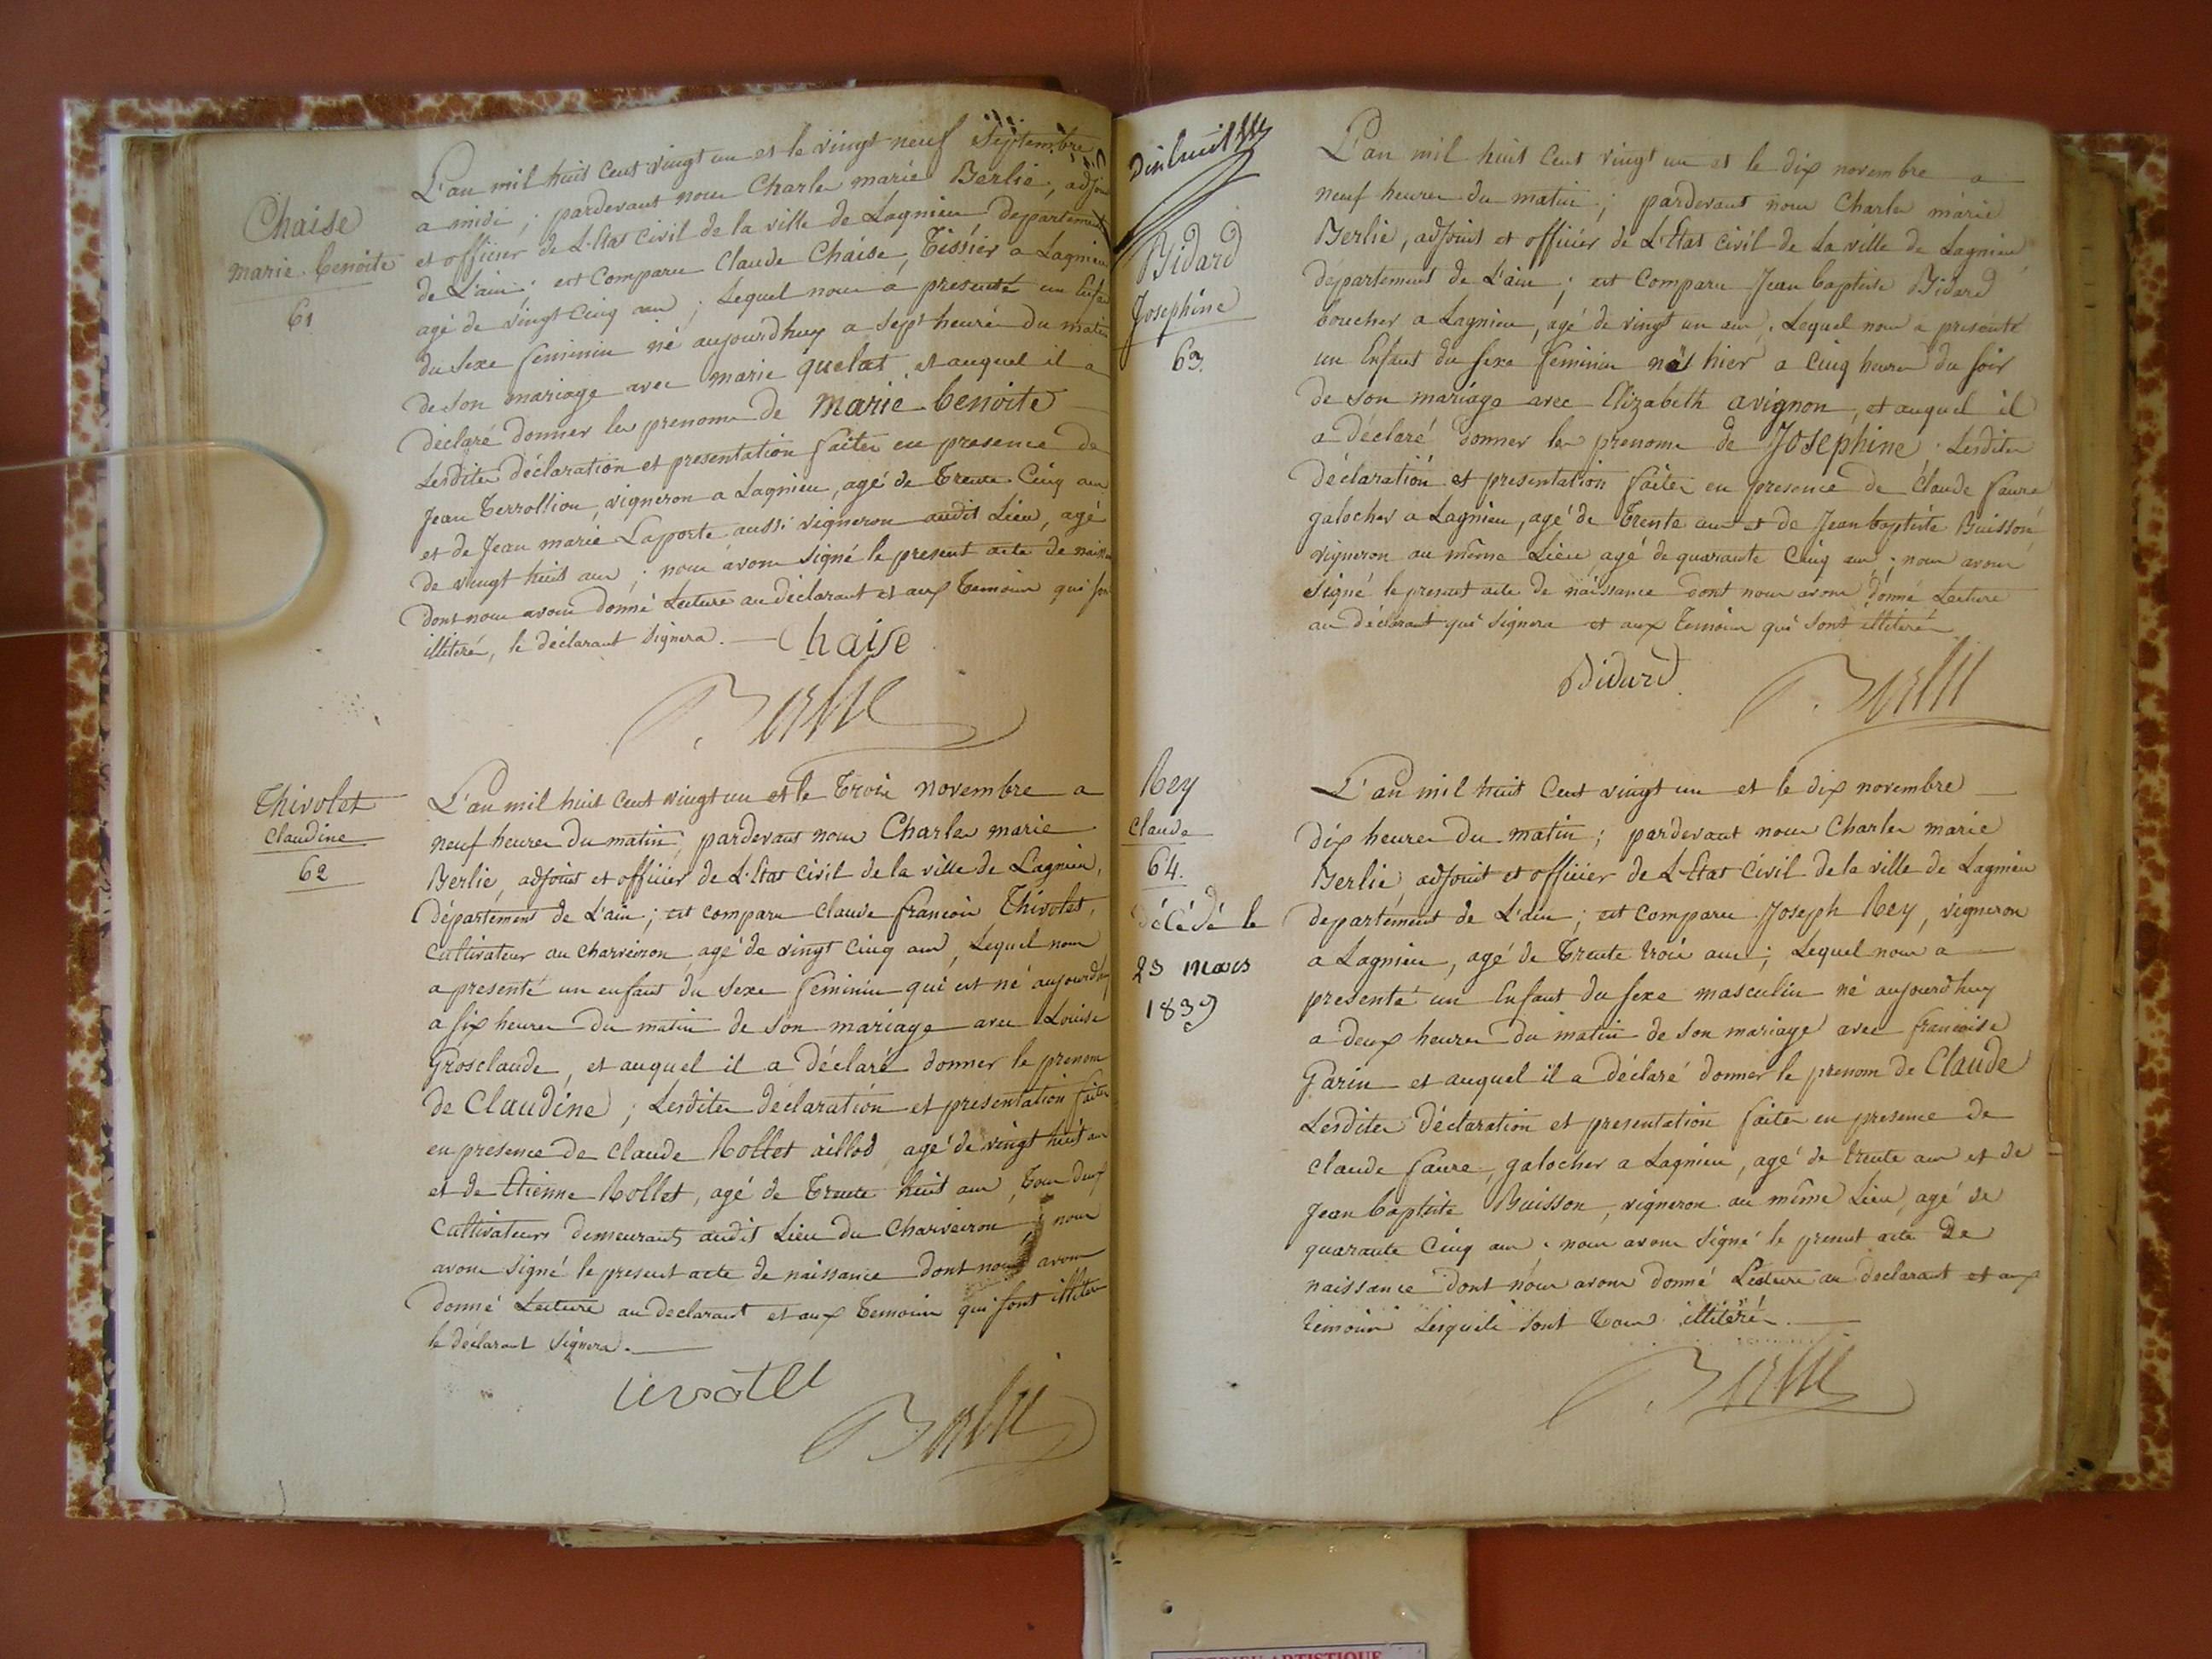 Chaise
marie-benoite
61
L'an mil huit cent vingt un et le vingt neuf Septembre
a midi ; pardevant nous Charles marie Berlié, adjoi
et officier de L'Etat civil de la ville de Lagnieu departement
de L'ain ; est comparu Claude Chaise, Tissier a Lagnieu
agé de vingt cinq ans ; Lequel nous a presenté un Enfa
du sexe feminin né aujourdhuy a sept heures du matin
de son mariage avec marie quelat et auquel il a
déclaré donner les prenoms de marie-benoite
Lesdites déclaration et presentation faites en presence de
Jean Terrollion, vigneron a Lagnieu, agé de Trente Cinq ans
et de Jean marie Laporte aussi vigneron audit Lieu, agé
de vingt huit ans ; nous avons signé le present acte de naiss
dont nous avons donné Lecture au déclarant et aux Temoins qui son
illiterés, le déclarant signera. — Chaise
Berlié
Thivolet
Claudine
62
L'an mil huit cent vingt un et le Trois novembre a
neuf heures du matin ; pardevant nous Charles marie
Berlié, adjoint et officier de L'Etat civil de la ville de Lagnieu,
département de L'ain ; est comparu claude françois Thivolet,
cultivateur au charveiron agé de vingt cinq ans, Lequel nous
a presenté un enfant du sexe feminin qui est né aujourdhuy
a six heures du matin de son mariage avec Louise
Grosclaude, et auquel il a déclaré donner le prenom
de Claudine ; Lesdites déclaration et presentation faites
en presence de claude Rollet aillod agé de vingt huit an
et de Etienne Rollet, agé de Trente huit ans, Tous deux
cultivateurs demeurants audit Lieu du Charveiron ; nous
avons signé le present acte de naissance dont nous avons
donné Lecture au declarant et aux Temoins qui sont illiter
le déclarant signera. —
Berlié
Dixhuit
Bidard
Josephine
63.
L'an mil huit cent vingt un et le dix novembre a
neuf heures du matin ; pardevant nous Charles marie
Berlié, adjoint et officier de L'Etat civil de La ville de Lagnieu
département de L'ain ; est comparu Jean baptiste Bidard
boucher a Lagnieu, agé de vingt un ans, Lequel nous a presenté
un Enfant du sexe feminin né hier a cinq heures du soir
de son mariage avec Elizabeth avignon, et auquel il
a déclaré donner les prenoms de Josephine ; Lesdites
déclaration et presentation faites en presence de claude faure
galocher a Lagnieu, agé de Trente ans et de Jean baptiste Buisson
vigneron au même Lieu, agé de quarante cinq ans ; nous avons
signé le present acte de naissance dont nous avons donné Lecture
au déclarant qui signera et aux Temoins qui sont illiterés
Bidard
Berlié
Rey
Claude
64.
décédé le
23 mars
1839
L'an mil huit cent vingt un et le dix novembre
dix heures du matin ; pardevant nous Charles marie
Berlié, adjoint et officier de L'Etat Civil de la ville de Lagnieu
departement de L'ain ; est comparu Joseph Rey, vigneron
a Lagnieu, agé de Trente trois ans ; Lequel nous a
presenté un Enfant du sexe masculin né aujourdhuy
a deux heures du matin de son mariage avec francoise
Garin et auquel il a déclaré donner le prenom de Claude
Lesdites déclaration et presentation faites en presence de
claude faure, galocher a Lagnieu, agé de trente ans et de
Jean baptiste Buisson, vigneron au même Lieu, agé de
quarante cinq ans. nous avons signé le present acte de
naissance dont nous avons donné Lecture au declarant et aux
temoins Lesquels sont Tous illiterés. —
Berlié
ARTISTIQUE